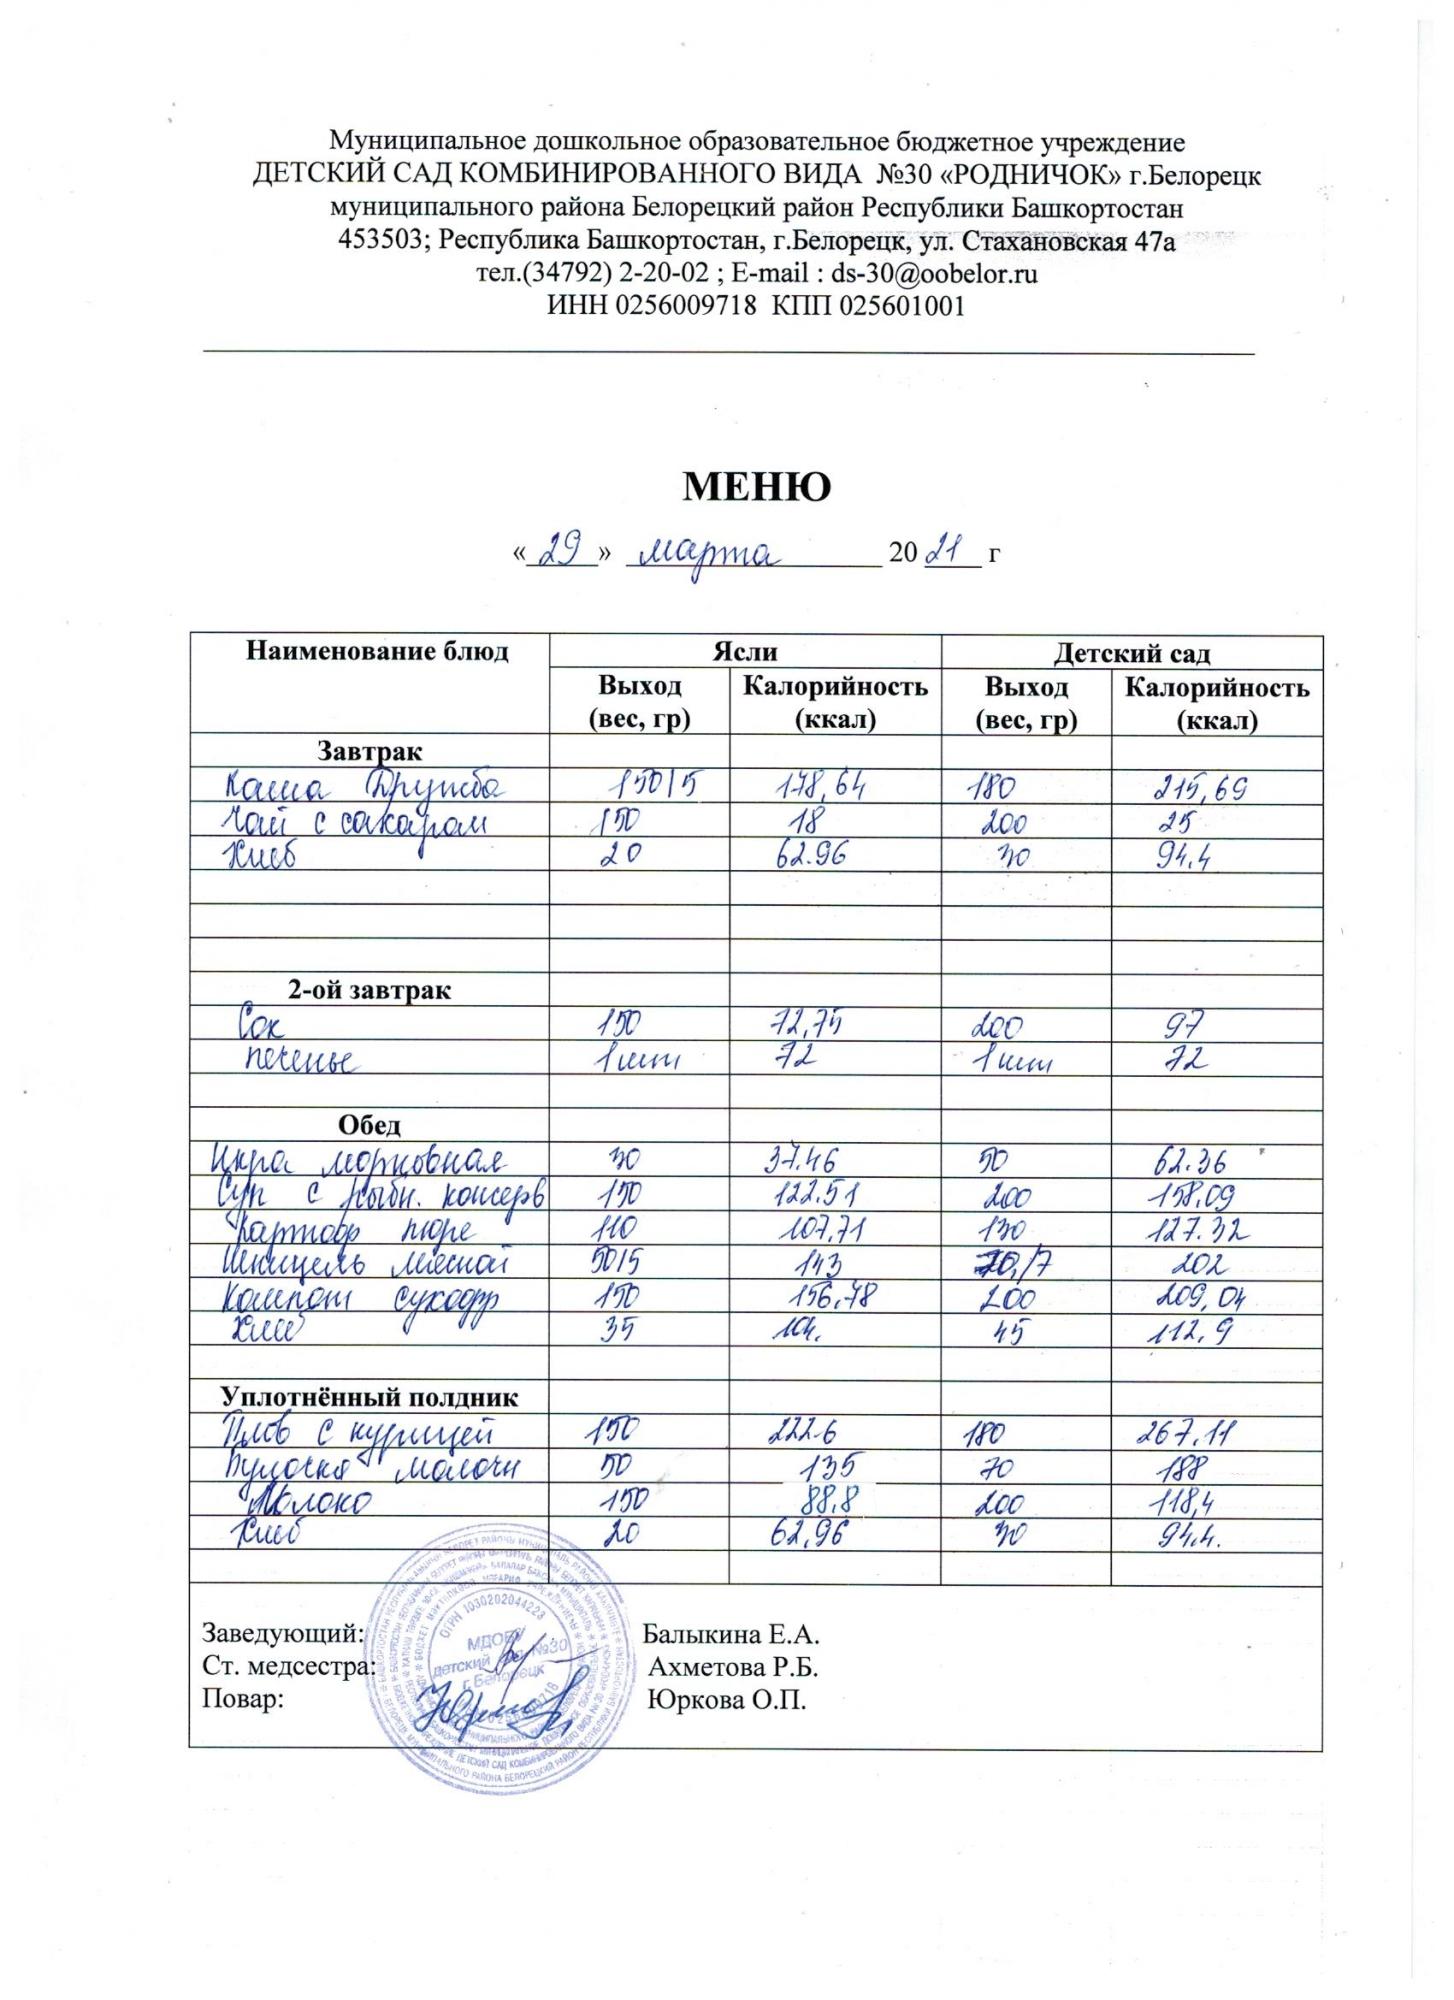 Муниципальное дошкольное образовательное бюджетное учреждение
ДЕТСКИЙ САД КОМБИНИРОВАННОГО ВИДА №30 «РОДНИЧОК» г.Белорецк
муниципального района Белорецкий район Республики Башкортостан
453503; Республика Башкортостан, г.Белорецк, ул. Стахановская 47а
тел.(34792) 2-20-02 ; E-mail : ds-30@oobelor.ru
ИНН 0256009718 КПП 025601001
МЕНЮ
« 29 » марта 20 21 г
Наименование блюд Ясли Детский сад
Выход (вес, гр) Калорийность (ккал) Выход (вес, гр) Калорийность (ккал)
Завтрак
Каша Дружба 150/5 178,64 180 215,69
Чай с сахаром 150 18 200 25
Хлеб 20 62.96 30 94.4
2-ой завтрак
Сок 150 72,75 200 97
печенье 1 шт 72 1 шт 72
Обед
Икра морковная 30 37.46 50 62.36
Суп с рыбн. консерв 150 122.51 200 158,09
Картоф пюре 110 107,71 130 127.32
Шницель мясной 50/5 143 70/7 202
Компот сухофр 150 156,78 200 209,04
Хлеб 35 104. 45 112,9
Уплотнённый полдник
Плов с курицей 150 222.6 180 267.11
Булочка молочн 50 135 70 188
Молоко 150 88,8 200 118,4
Хлеб 20 62,96 30 94.4.
Заведующий: Балыкина Е.А.
Ст. медсестра: Ахметова Р.Б.
Повар: Юркова О.П.
ОГРН 1030202044223
МДОБУ
детский сад №30
г.Белорецк